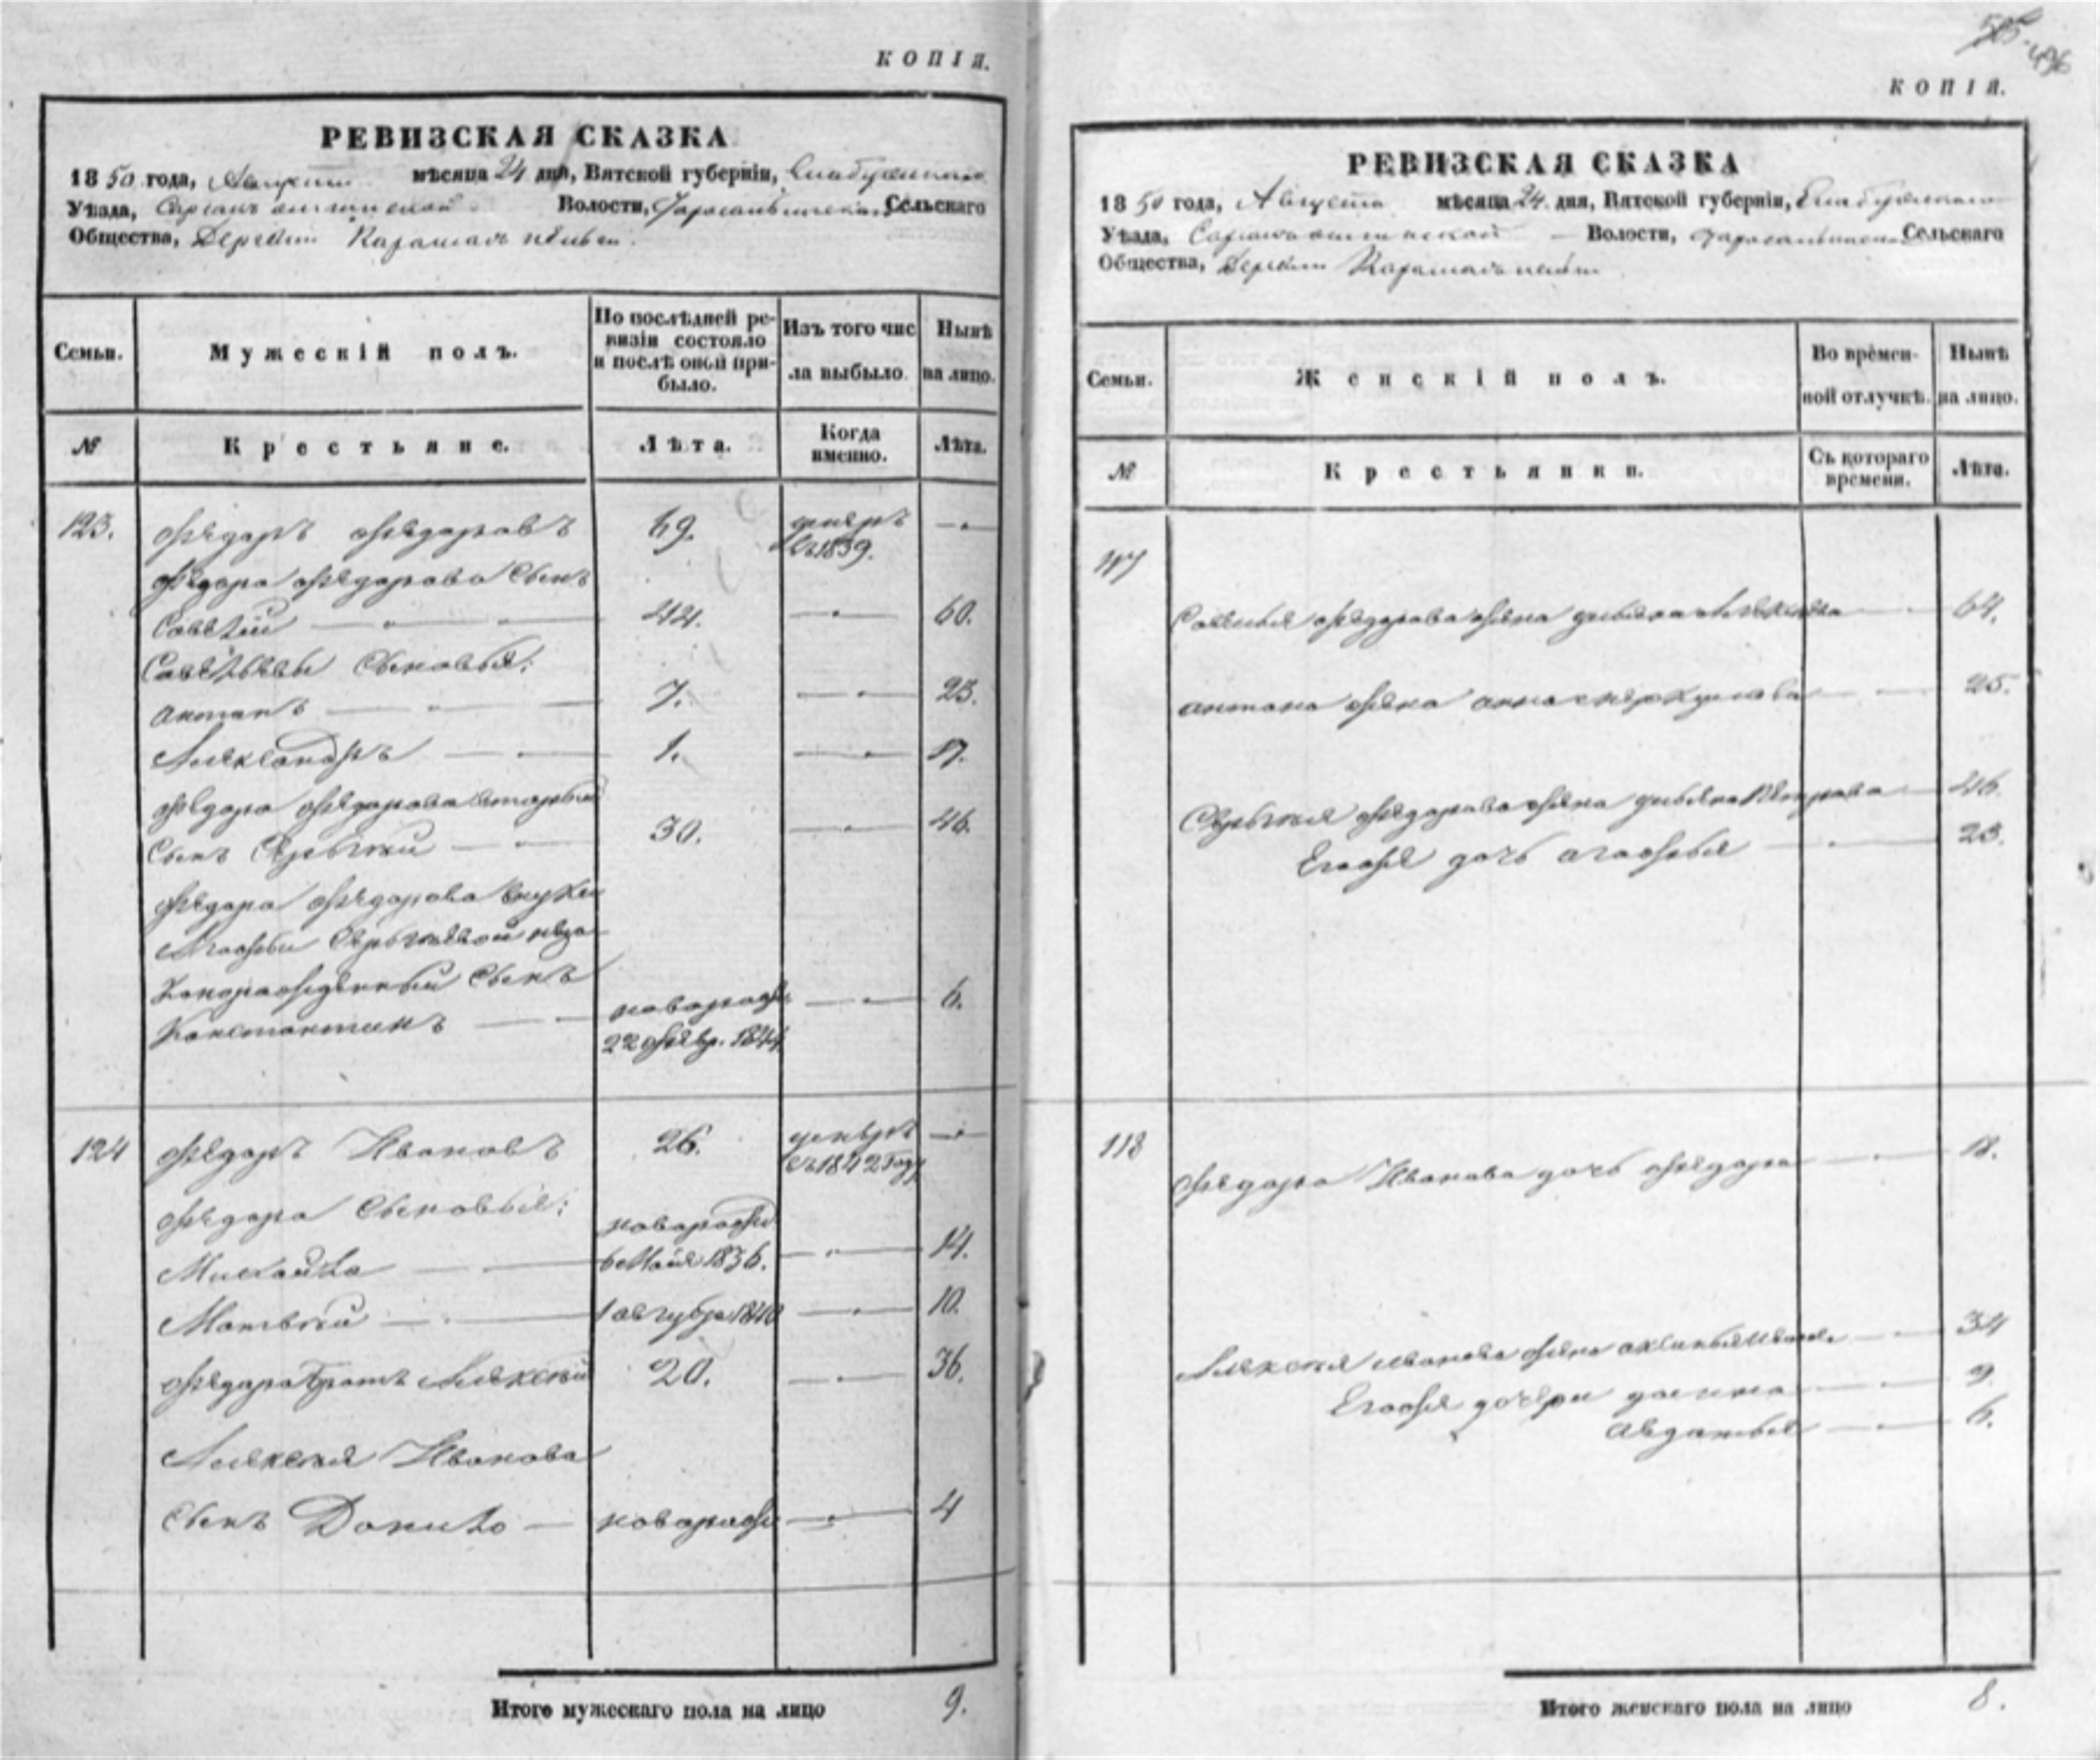 КОПІЯ.
РЕВИЗСКАЯ СКАЗКА
1850 года, Августа мѣсяца 24 дня, Вятской губерніи, Елабужскаго
Уѣзда, Волости, Сельскаго
Общества, Деревни
Семьи. Мужескій полъ. По послѣдней ревизіи состояло и послѣ оной прибыло. Изъ того числа выбыло. Нынѣ на лицо.
№ Крестьяне. Лѣта. Когда именно. Лѣта.
123. Федоръ Федоровъ 69. умеръ въ 1839. —
Федора Федорова Сынъ
Савелій 44. — 60.
Савельевы Сыновья:
Антонъ 7. — 23.
Александръ 1. — 17.
Федора Федорова вторый
Сынъ Сергѣй 30. — 46.
Федора Федорова внуки
Агафьи Сергѣевой неза-
коннорожденный Сынъ
Константинъ новорожд. 22 Февр. 1844 — 6.
124 Федоръ Ивановъ 26. умеръ въ 1842 году —
Федора Сыновья:
Михайла новорожд. 6 Мая 1836. — 14.
Матвѣй 1 августа 1840 — 10.
Федора братъ Алексѣй 20. — 36.
Алексѣя Иванова
Сынъ Данило новорожд — 4
Итого мужескаго пола на лицо 9.
505.
496
КОПІЯ.
РЕВИЗСКАЯ СКАЗКА
1850 года, Августа мѣсяца 24 дня, Вятской губерніи, Елабужскаго
Уѣзда, Волости, Сельскаго
Общества, Деревни
Семьи. Женскій полъ. Во временной отлучкѣ. Нынѣ на лицо.
№ Крестьянки. Съ котораго времени. Лѣта.
117
Савелья Федорова жена Ульяна Алексѣева — 64.
Антона жена Анна — 25.
Сергѣя Федорова жена Ульяна Петрова — 46
Егоже дочь Агафья — 23.
118 Федора Иванова дочь Федора — 18.
Алексѣя Иванова жена Аксинья — 34
Егоже дочери — 9
Авдотья — 6.
Итого женскаго пола на лицо 8.